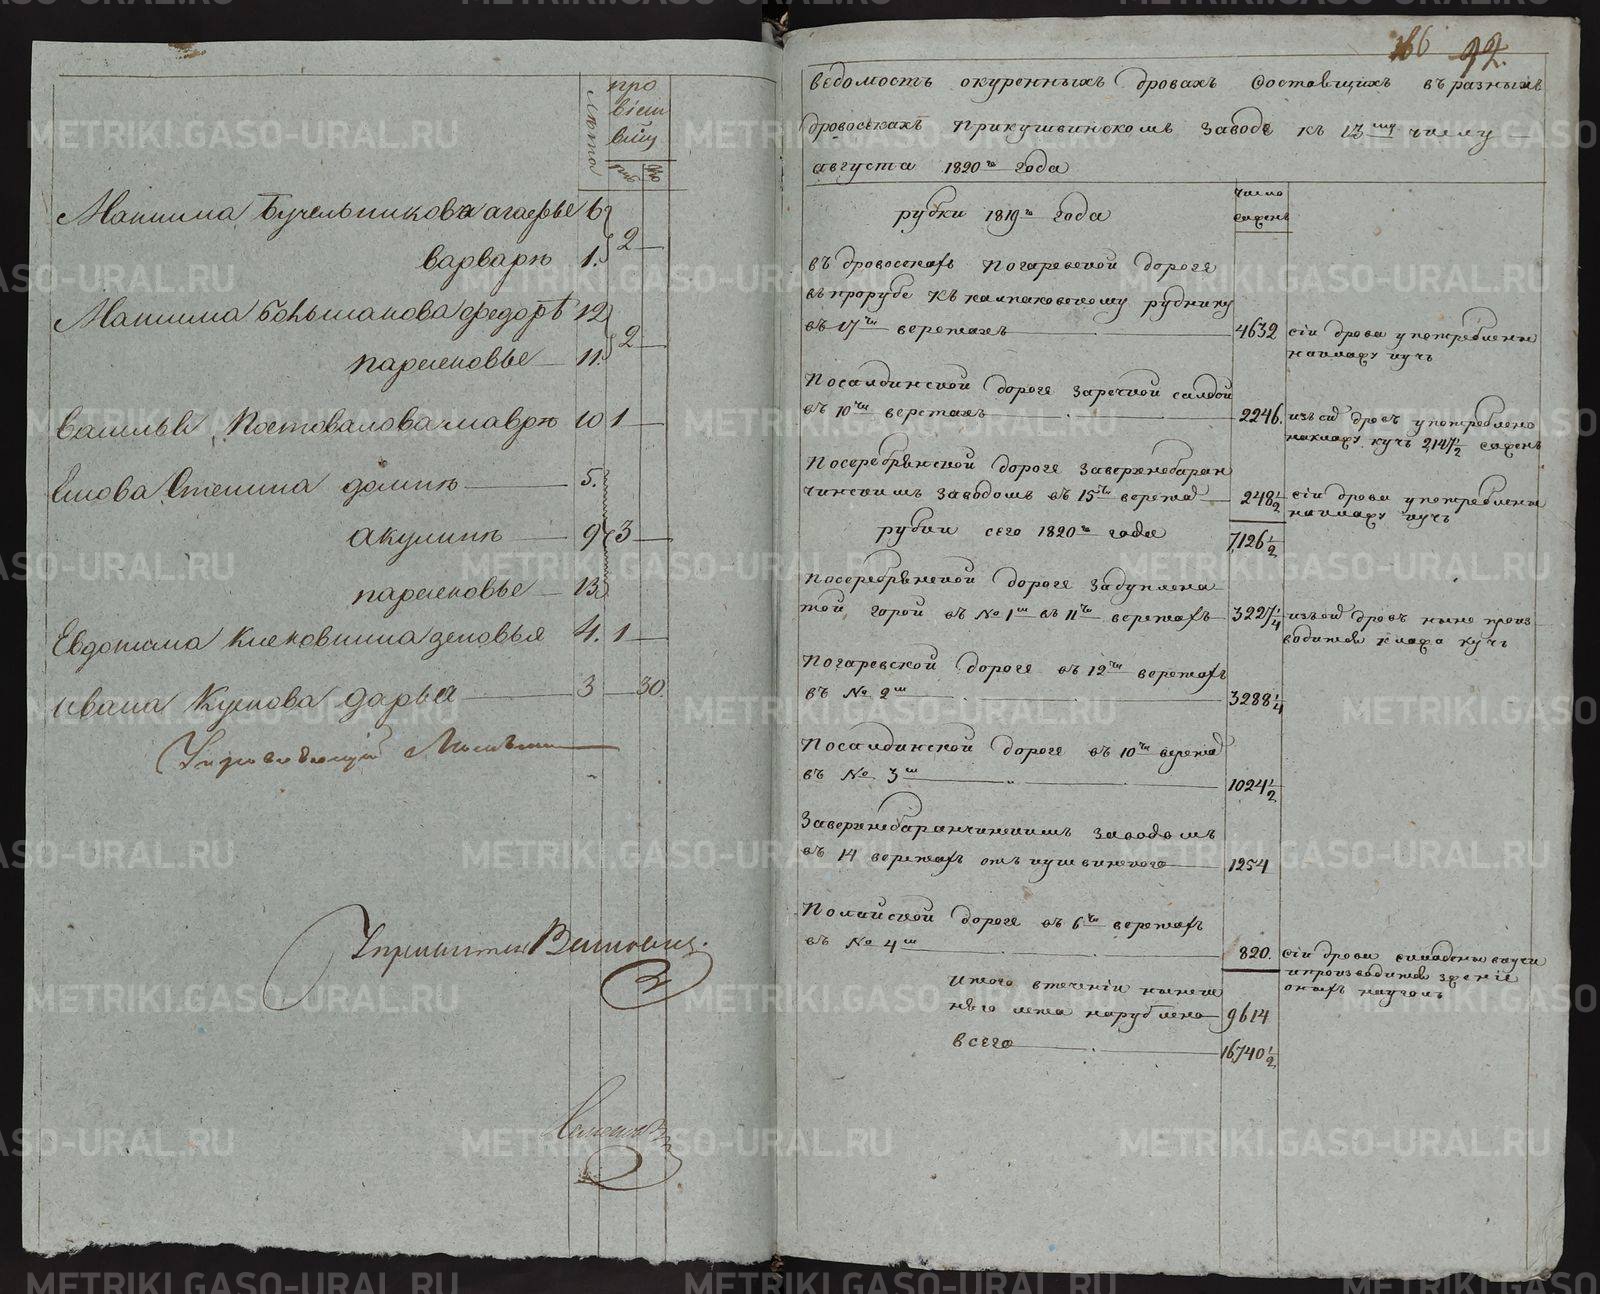 Лѣта
про
віян
ту
пу
фу
Максима Бучельникова агафье 6
2
варваре 1.
Максима Большакова федорѣ 12
2
парасковье 11.
Василья Постовалова мавре 10 1
Домне 5.
акулине 9 3
парасковье 13
Евдокима зеновья 4. 1
ивана дарья 3 30
Управляющий
166 92.
Ведомость о куренныхъ дровахъ Состоящихъ въ разныхъ
дровосекахъ При кушвинскомъ Заводе къ 13му числу
августа 1820го года
число
сажень
рубки 1819го года
въ дровосекахъ По гаревской дороге
в прорубе къ рудник��
въ 17ти верстахъ 4632 сіи дрова употреблены
на кладку кучъ
По салдинской дороге За речкой салдой
въ 10ти верстахъ 2246. изъ сих дровъ употреблено
на кладку кучъ 2147½ сажень
По серебрянской дороге За верхнебаран
чинскимъ Заводомъ въ 15ти верстах 248½ сіи дрова употреблены
на кладку кучъ
рубки сего 1820го года 7126½
По серебрянской дороге За
той горой въ № 1м въ 11ти верстахъ 3227¼ изъ сих дровъ ныне произ
водится кладка кучъ
По гаревской дороге въ 12ти верстахъ
въ № 2м 3288¼
По салдинской дороге въ 10ти верстах
въ № 3м 1024½
За верхнебаранчинскимъ Заводомъ
въ 14 верстахъ отъ кушвинского 1254
По лайской дороге въ 6ти верстахъ
въ № 4м 820. сіи дрова складены в кучи
и производится зженіе
оныхъ на уголь
итого в теченіи нынеш
няго лета нарублено 9614
всего 16,740½